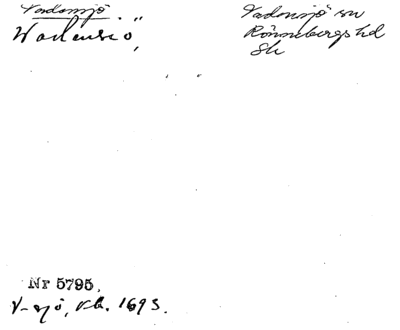 Vadensjö
Vadensjö sn
Wadensiö,
Rönnebergs hd
Sk
Nr 5795.
V-sjö, kb. 1693.